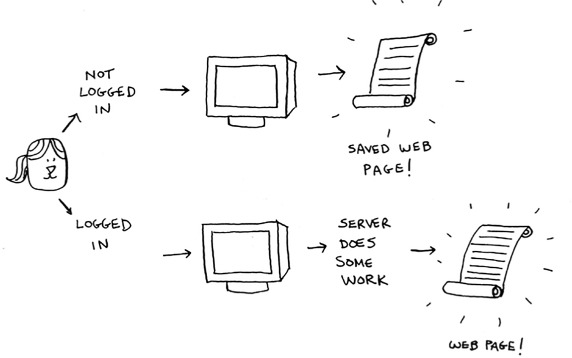 NOT
LOGGED
IN
SAVED WEB
PAGE!
LOGGED
IN
SERVER
DOES
SOME
WORK
WEB PAGE!